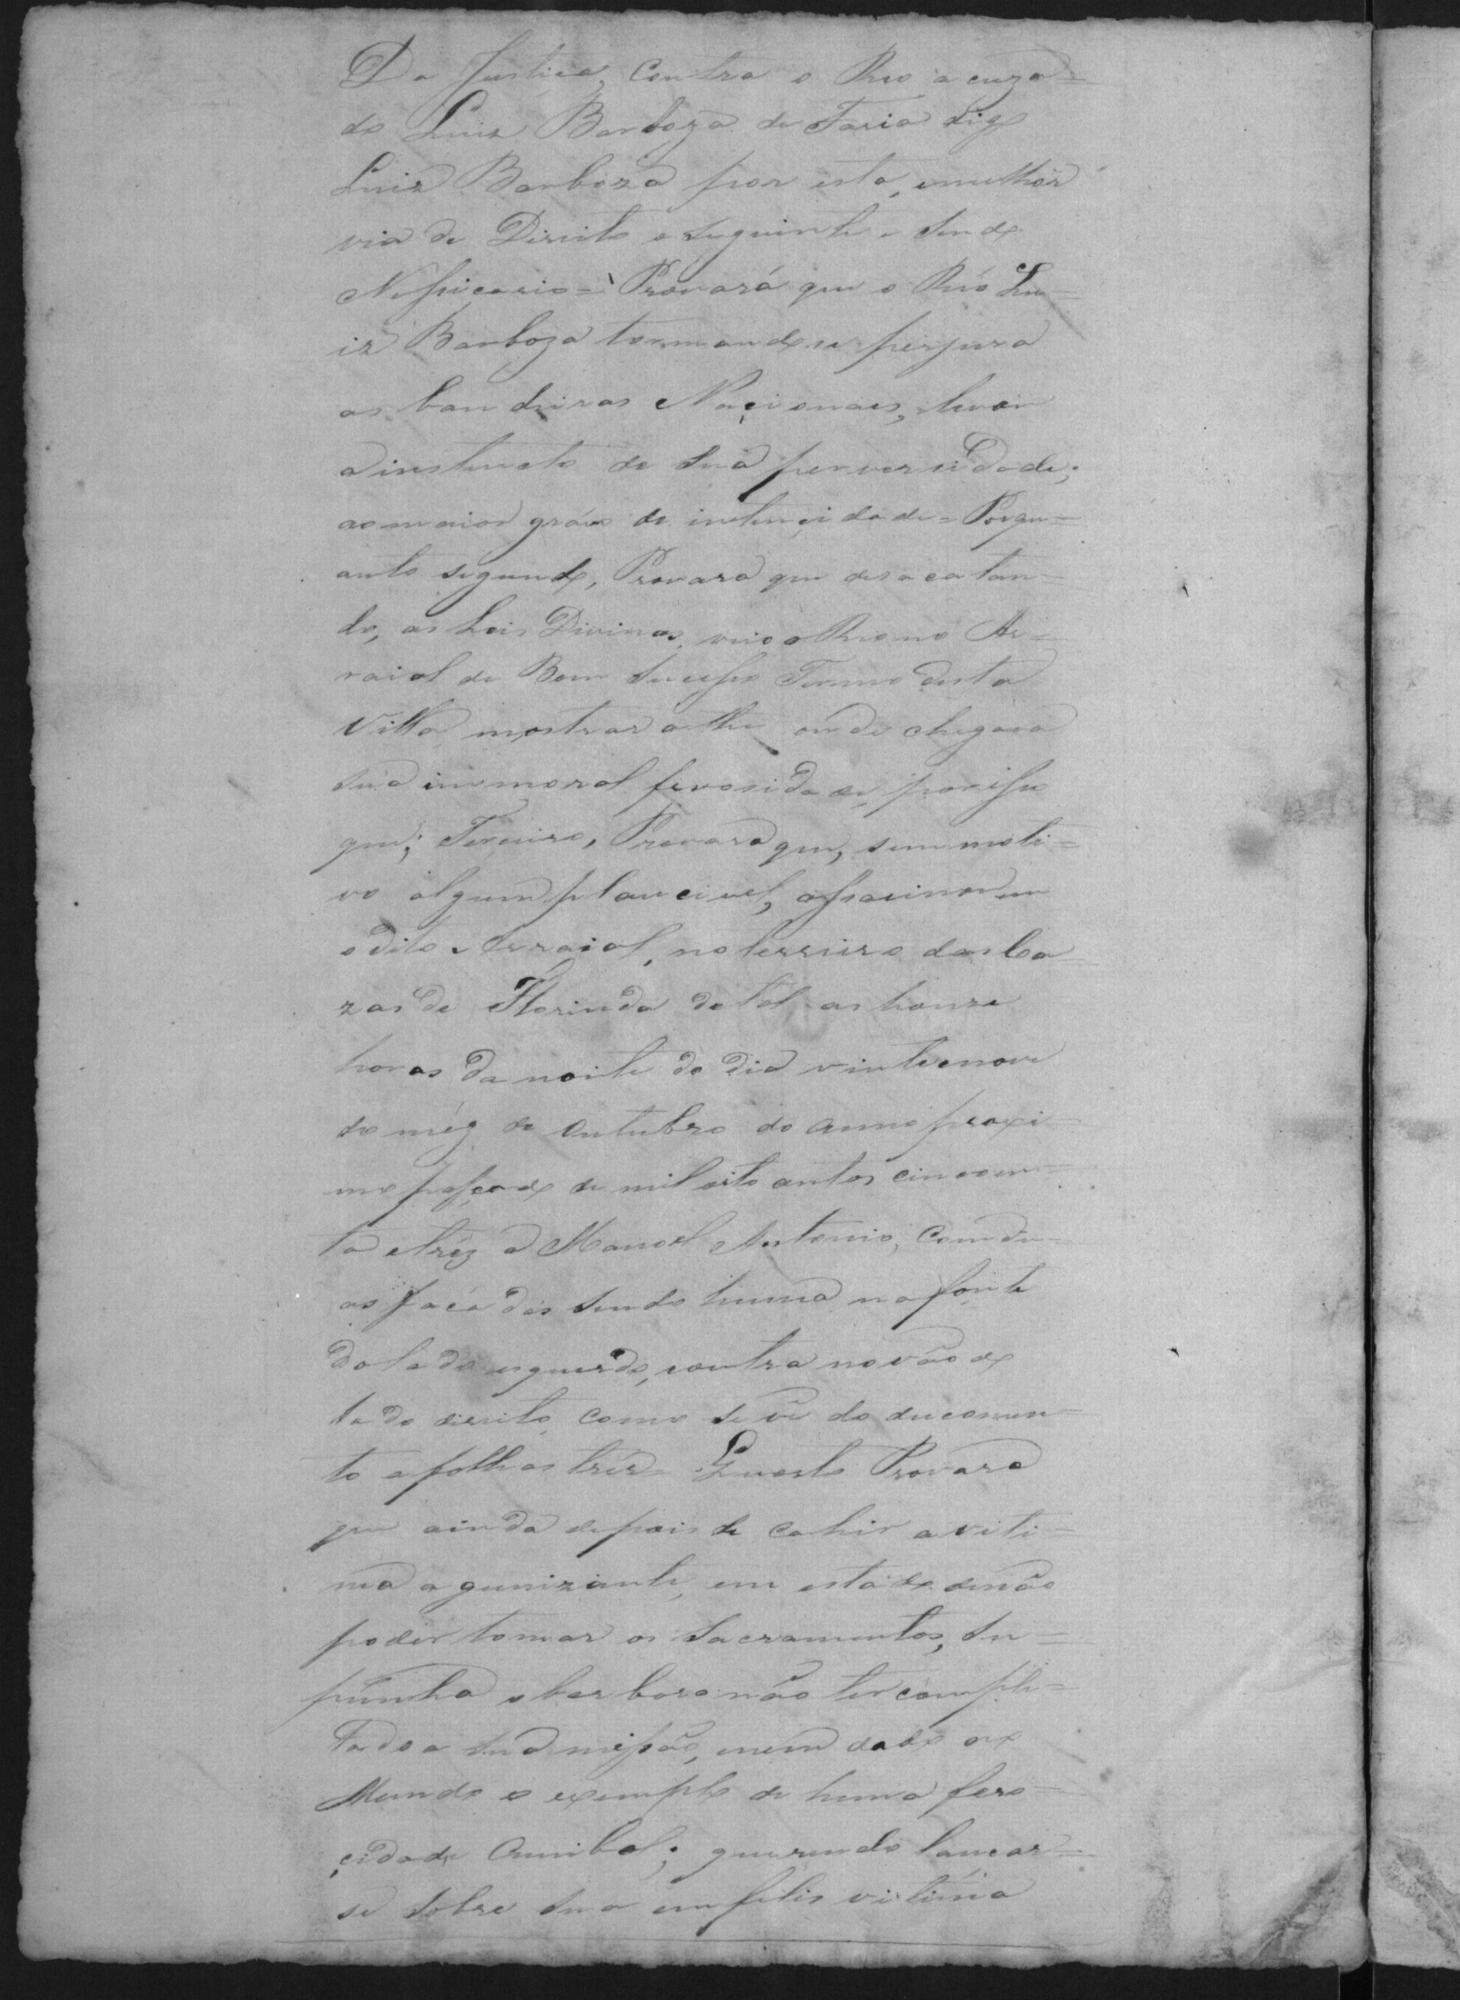 Da Justiça, Contra o Reo acuza=
do Luiz Barboza de Faria dig
Luiz Barboza por esta, emelhor
via de Direito o seguinte e sendo
Nessicario = Provará que o Réo Lu=
iz Barboza tornandose perjuro
as bandeiras Nacionaes, levou
o instincto de sua perversidade,
ao maior gráo de intencidade = Porqu=
anto segundo, Provara que desacatan=
do, as Leis Divinas, veio o Reo no Ar=
raial de Bom Sucesso Termo desta
Villa, mostrar athe onde chegava
sua immoral ferosidade, porisso
que; Terceiro, Provara que, sem moti=
vo algum plaucivel, assacinou em
o dito Arraial, no terreiro das Ca=
zas de Florinda de tal as honze
horas da noite do dia vinte enove
do méz de Outubro do anno proxi=
mo passado de mil oito centos cincoen=
ta etréz a Manoel Antonio, Com du=
as facádas sendo huma na fonte
do lado esquerdo, eoutra no vão do
lado direito, como se vê do ducomen=
to a folhas tréz = Quarto Provara
que ainda depois de cahir a viti=
ma agunizante, em estado denão
poder tomar os Sacramentos, su=
punha o barbaro não ter compli=
tado a sua missão, enem dado ao
Mundo o exemplo de huma fero=
cidade Canibal; querendo lançar=
se sobre sua enfelis vitima